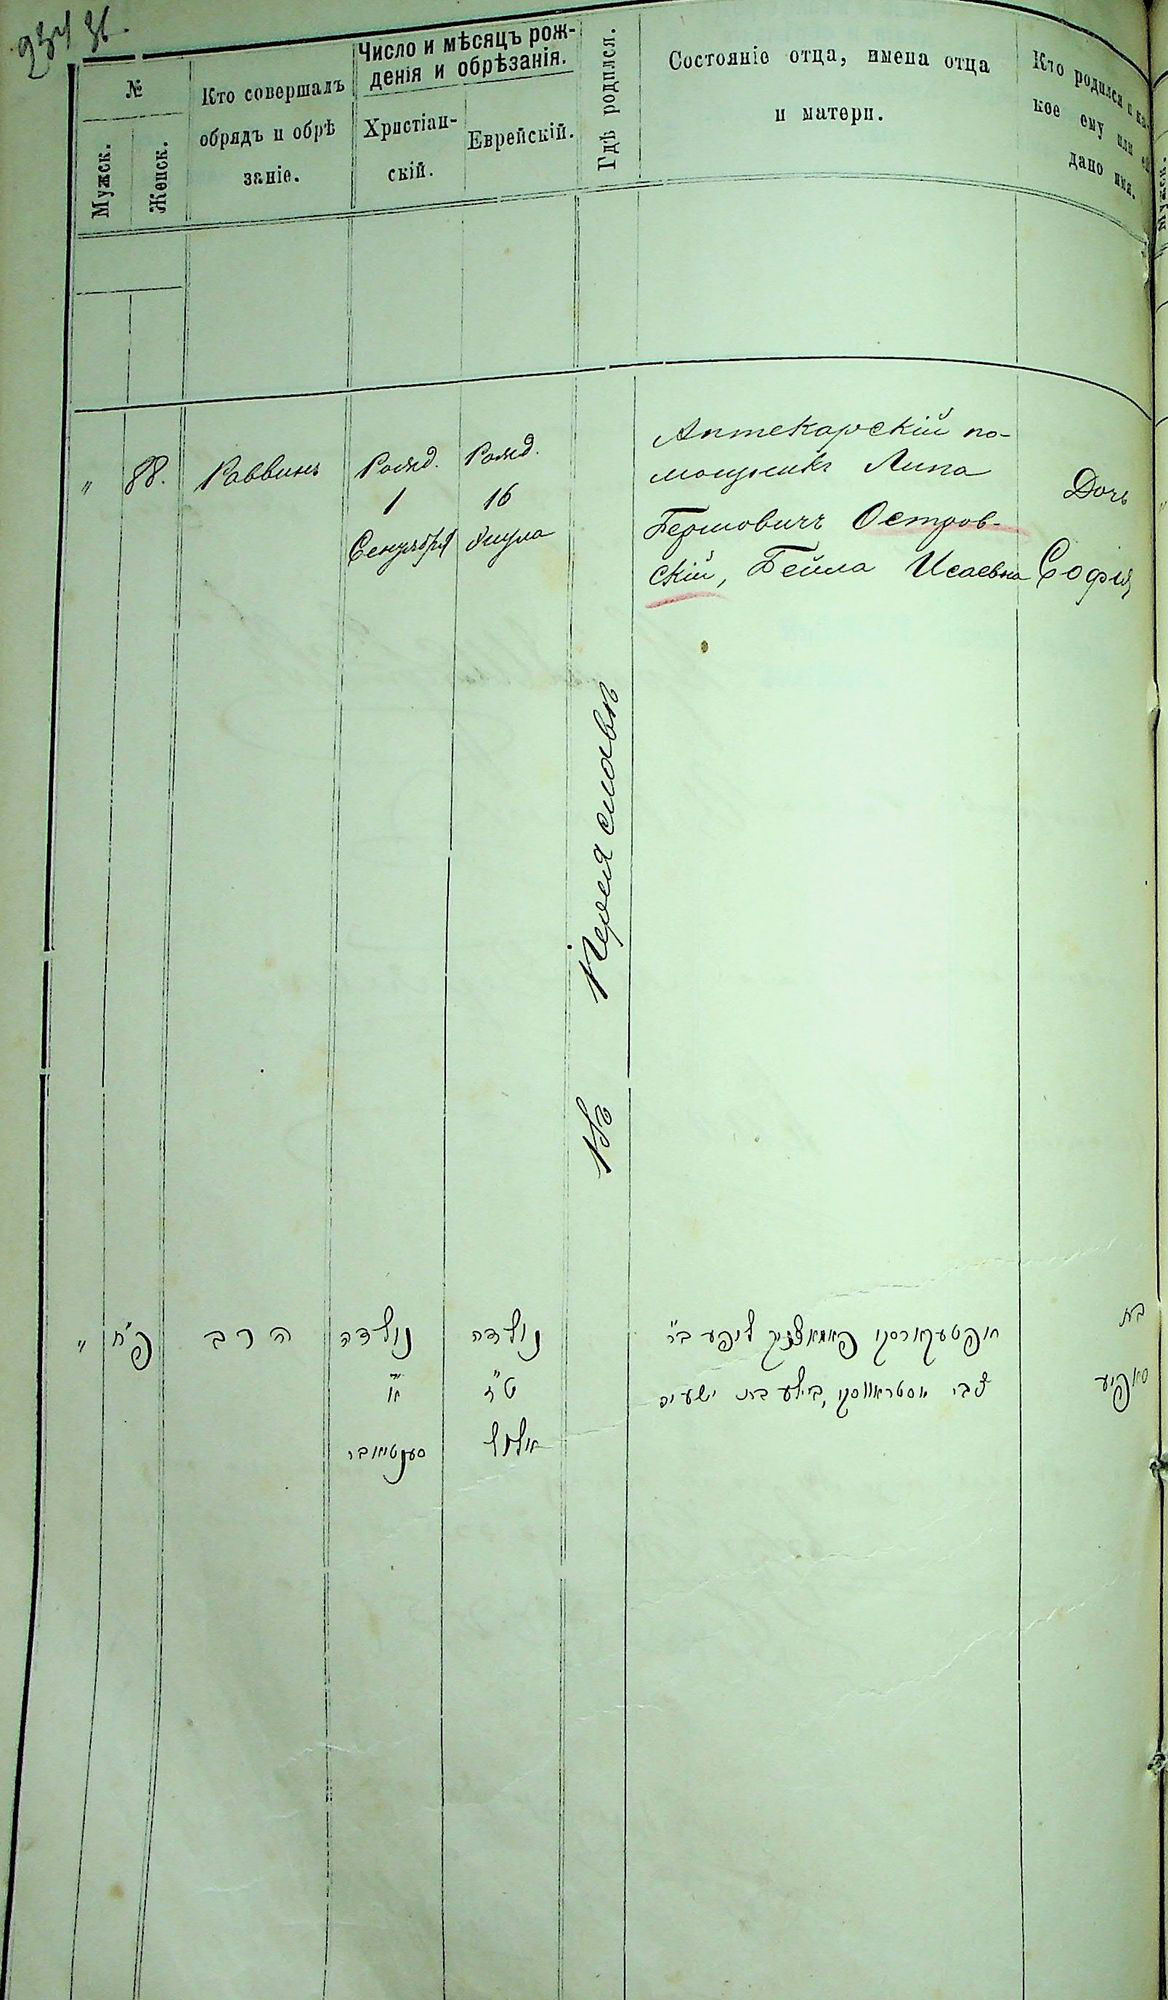 234 31.
№
Мужск.
Женск.
Кто совершалъ
обрядъ и обрѣ
заніе.
Число и мѣсяцъ рож-
денія и обрѣзанія.
Христіан-
скій.
Еврейскій.
Гдѣ родился.
Состояніе отца, имена отца
и матери.
Кто родился и ка-
кое ему или ей
дано имя.
„
88.
Раввинъ
Рожд.
1
Сентября
Рожд.
16
Элула
Въ Переяславѣ
Аптекарскій по-
мощникъ Липа
Гершовичъ Остров-
скій, Бейла Исаевна
Дочь
Софія
„
פ״ח
הרב
נולדה
א׳
סענטיאבר
נולדה
ט״ז
אלול
אפטעקארסקי פאמאשניק ליפע ב״ר
צבי אסטראווסקי, ביילע בת ישעיה
בת
סאפיע